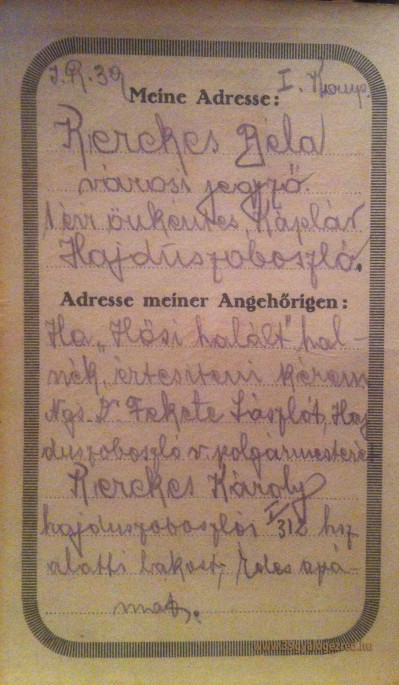 I.R.39 I. Komp.
Meine Adresse:
Kerekes Béla
városi jegyző.
1 évi önkéntes, Káplár
Hajdúszoboszló.
Adresse meiner Angehőrigen:
Ha „Hősi halált" hal-
nék, értesiteni kérem
Ngs. Dr. Fekete Lászlót, Haj
duszoboszló v. polgármesterét
Kerekes Károly
hajduszoboszlói I/312 hsz
alatti lakost, édes apá-
mat.
www.39gyalogezred.hu